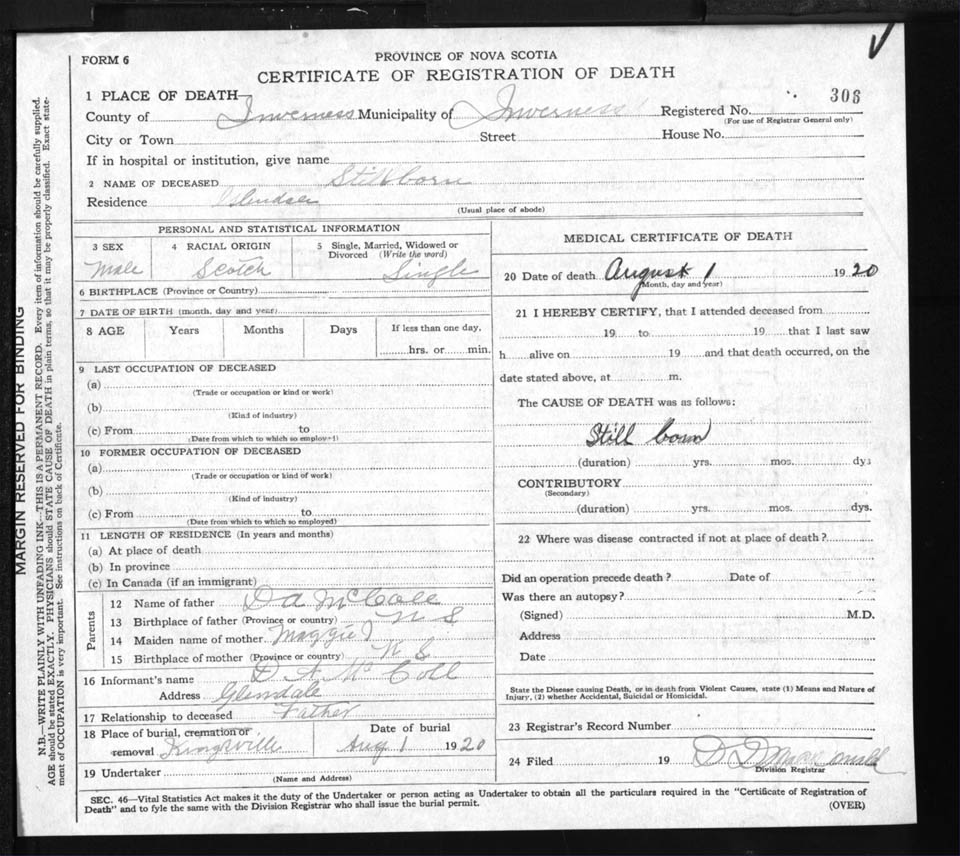 FORM 6
PROVINCE OF NOVA SCOTIA
CERTIFICATE OF REGISTRATION OF DEATH
1 PLACE OF DEATH—
County of Inverness Municipality of Inverness Registered No. 306
(For use of Registrar General only)
City or Town Street House No.
If in hospital or institution, give name
2 NAME OF DECEASED Stillborn
Residence
(Usual place of abode)
PERSONAL AND STATISTICAL INFORMATION
3 SEX 4 RACIAL ORIGIN 5 Single, Married, Widowed or
Divorced (Write the word)
Male Scotch Single
6 BIRTHPLACE (Province or Country)
7 DATE OF BIRTH (month, day and year)
8 AGE Years Months Days If less than one day,
hrs. or min.
9 LAST OCCUPATION OF DECEASED
(a)
(Trade or occupation or kind or work)
(b)
(Kind of industry)
(c) From to
(Date from which to which so employed)
10 FORMER OCCUPATION OF DECEASED
(a)
(Trade or occupation or kind of work)
(b)
(Kind of industry)
(c) From to
(Date from which to which so employed)
11 LENGTH OF RESIDENCE (In years and months)
(a) At place of death
(b) In province
(c) In Canada (if an immigrant)
Parents
12 Name of father D A McCole
13 Birthplace of father (Province or country) N S
14 Maiden name of mother Maggie
15 Birthplace of mother (Province or country) N S
16 Informant's name D A Mc Coll
Address Glendale
17 Relationship to deceased Father
18 Place of burial, cremation or Date of burial
removal Kingsville Aug 1 1920
19 Undertaker
(Name and Address)
MEDICAL CERTIFICATE OF DEATH
20 Date of death August 1 1920
(Month, day and year)
21 I HEREBY CERTIFY, that I attended deceased from
19 to 19 that I last saw
h alive on 19 and that death occurred, on the
date stated above, at m.
The CAUSE OF DEATH was as follows:
Still born
(duration) yrs. mos. dys
CONTRIBUTORY
(Secondary)
(duration) yrs. mos. dys.
22 Where was disease contracted if not at place of death?
Did an operation precede death? Date of
Was there an autopsy?
(Signed) M.D.
Address
Date
State the Disease causing Death, or in death from Violent Causes, state (1) Means and Nature of
Injury, (2) whether Accidental, Suicidal or Homicidal.
23 Registrar's Record Number
24 Filed 19 D D MacDonald
Division Registrar
SEC. 46—Vital Statistics Act makes it the duty of the Undertaker or person acting as Undertaker to obtain all the particulars required in the "Certificate of Registration of
Death" and to fyle the same with the Division Registrar who shall issue the burial permit.
(OVER)
MARGIN RESERVED FOR BINDING
N.B.—WRITE PLAINLY WITH UNFADING INK—THIS IS A PERMANENT RECORD. Every item of information should be carefully supplied.
AGE should be stated EXACTLY. PHYSICIANS should STATE CAUSE OF DEATH in plain terms, so that it may be properly classified. Exact state-
ment of OCCUPATION is very important. See instructions on back of Certificate.